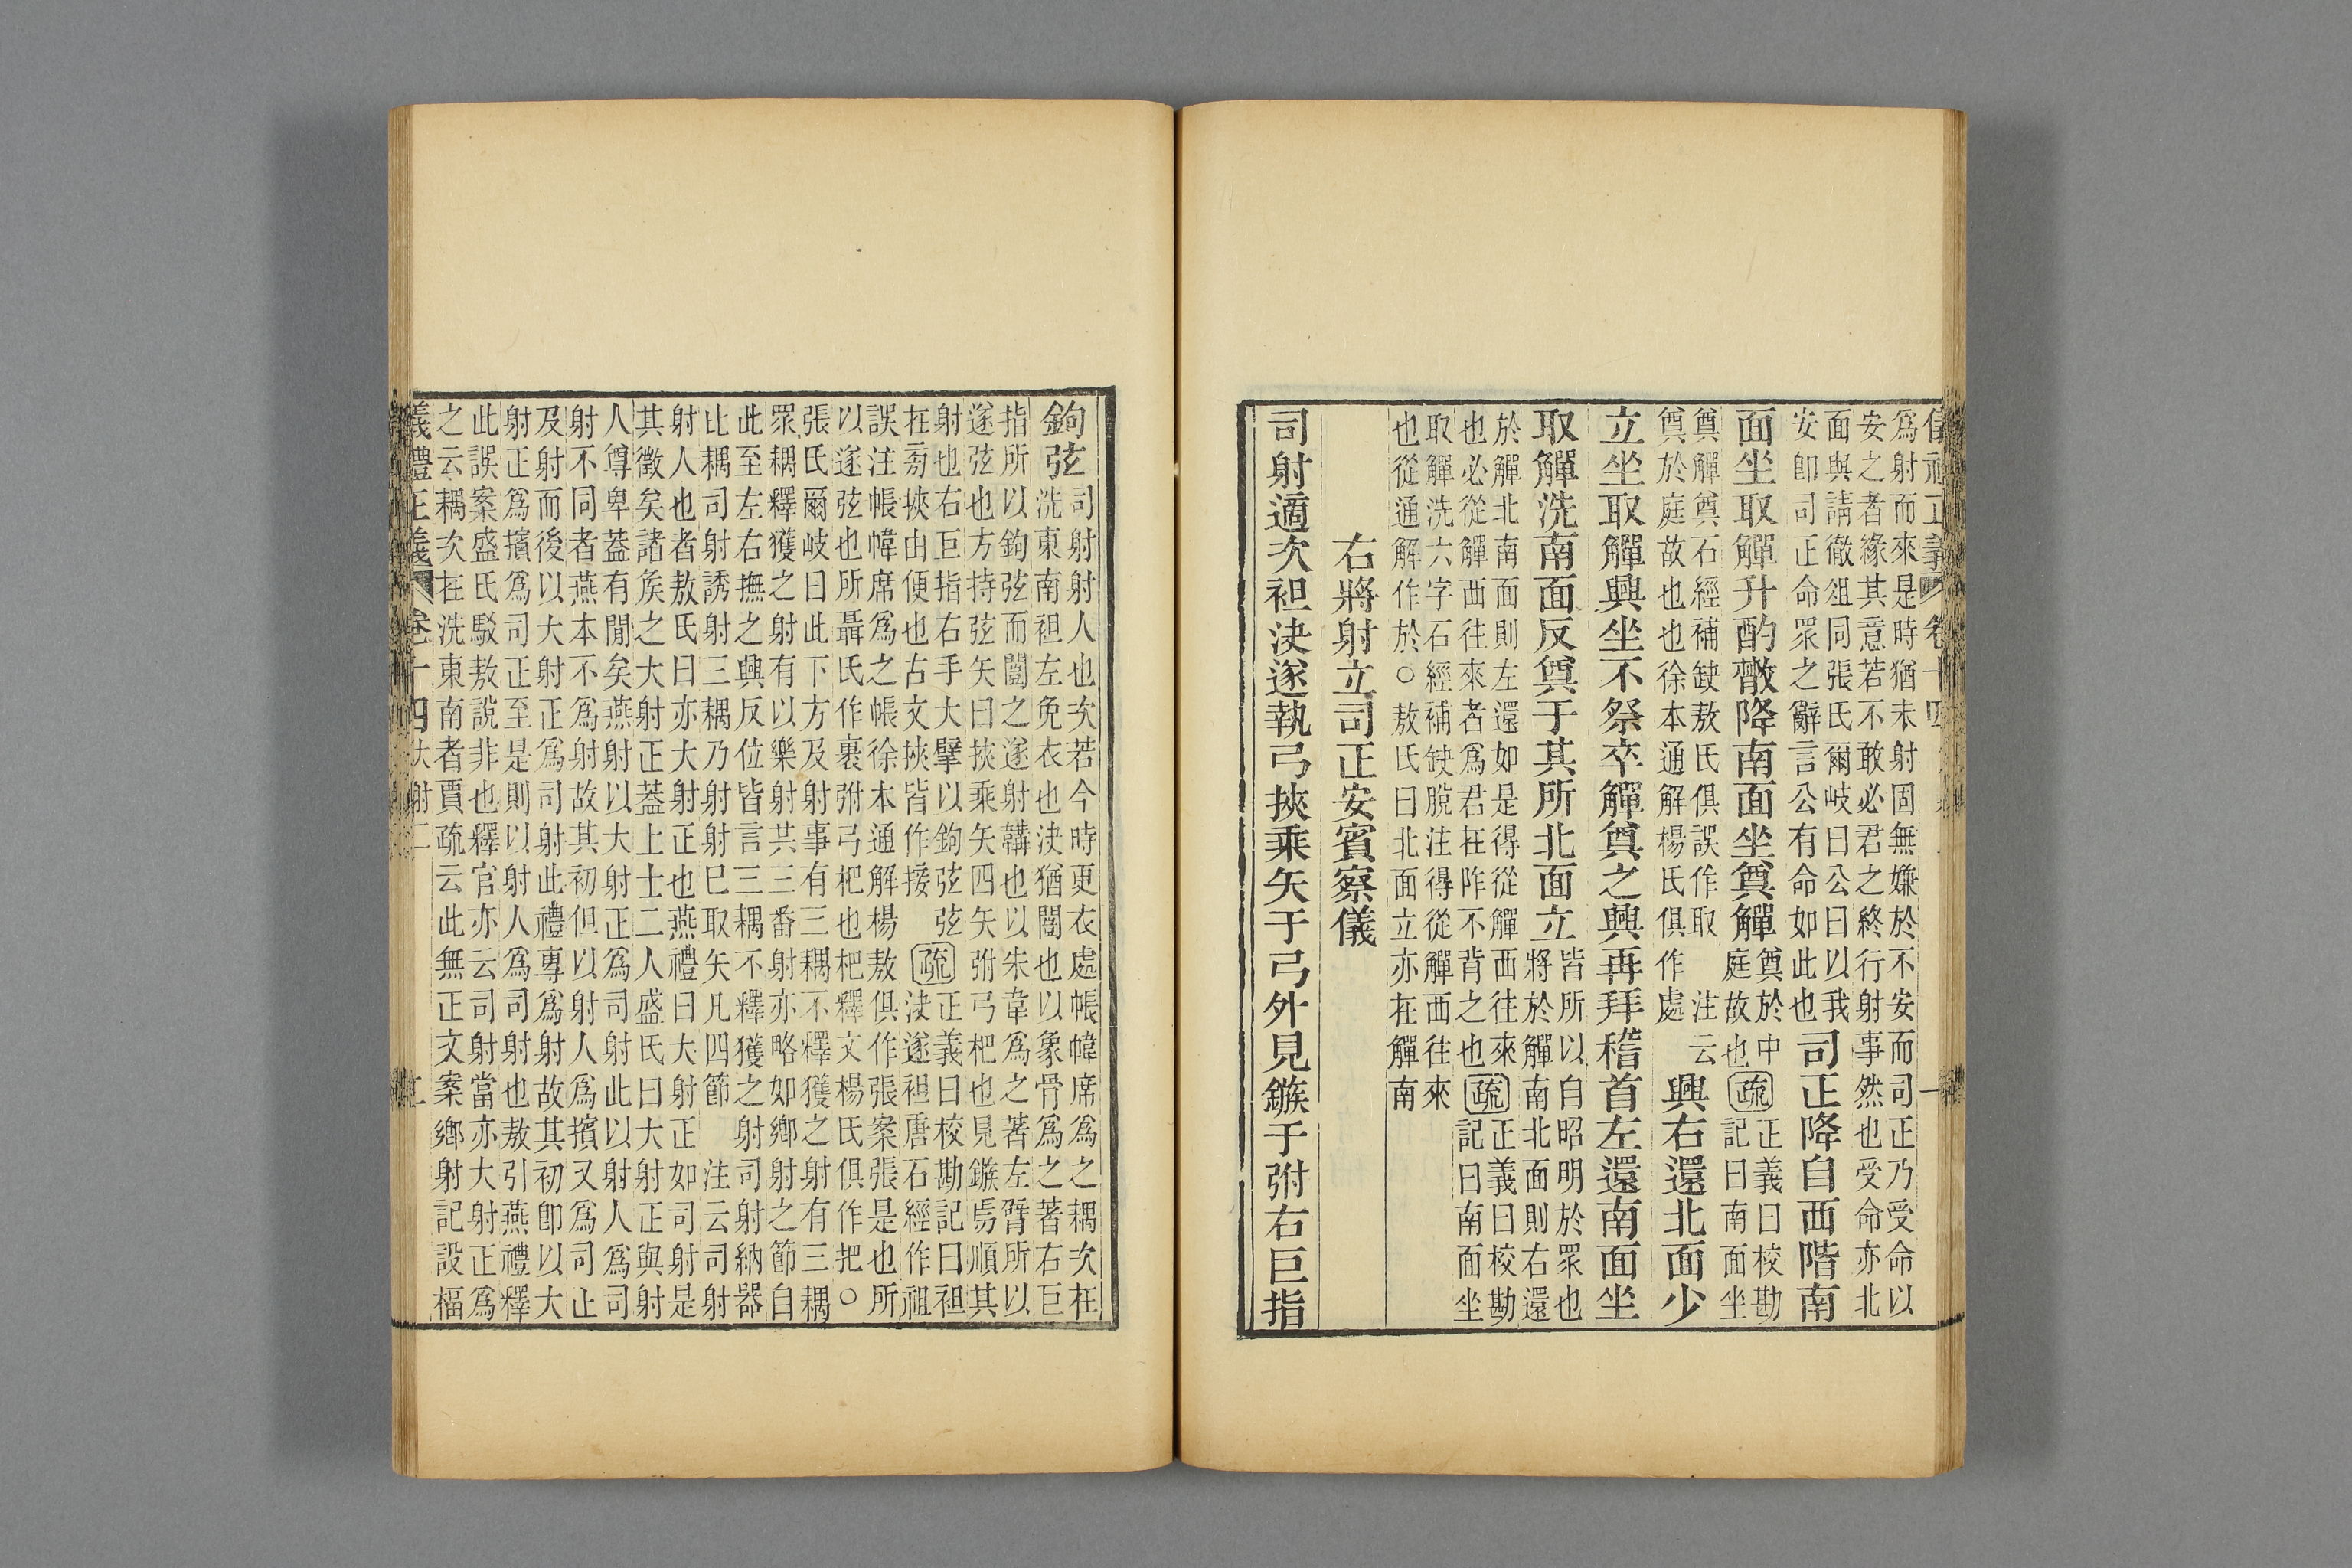 儀禮正義 卷十四 一
爲射而來是時猶未射固無嫌於不安而司正乃受命以
安之者緣其意若不敢必君之終行射事然也受命亦北
面與請徹俎同張氏爾岐曰公曰以我
安卽司正命眾之辭言公有命如此也
司正降自西階南
面坐取觶升酌散降南面坐奠觶
奠於中
庭故也
疏
正義曰校勘
記曰南面坐
奠觶奠石經補缺敖氏俱誤作取 注云
奠於庭故也也徐本通解楊氏俱作處
興右還北面少
立坐取觶興坐不祭卒觶奠之興再拜稽首左還南面坐
取觶洗南面反奠于其所北面立
皆所以自昭明於眾也
將於觶南北面則右還
於觶北南面則左還如是得從觶西往來
也必從觶西往來者爲君在阼不背之也
疏
正義曰校勘
記曰南面坐
取觶洗六字石經補缺脫注得從觶西往來
也從通解作於○敖氏曰北面立亦在觶南
右將射立司正安賓察儀
司射適次袒決遂執弓挾乘矢于弓外見鏃于弣右巨指
鉤弦
司射射人也次若今時更衣處帳幃席爲之耦次在
洗東南袒左免衣也決猶闓也以象骨爲之著右巨
指所以鉤弦而闓之遂射韝也以朱韋爲之著左臂所以
遂弦也方持弦矢曰挾乘矢四矢弣弓杷也見鏃焉順其
射也右巨指右手大擘以鉤弦弦
在旁挾由便也古文挾皆作接
疏
正義曰校勘記曰袒
決遂袒唐石經作祖
誤注帳幃席爲之帳徐本通解楊敖俱作張案張是也所
以遂弦也所聶氏作裹弣弓杷也杷釋文楊氏俱作把○
張氏爾岐曰此下方及射事有三耦不釋獲之射有三耦
眾耦釋獲之射有以樂射共三番射亦略如鄉射之節自
此至左右撫之興反位皆言三耦不釋獲之射司射納器
比耦司射誘射三耦乃射射巳取矢凡四節 注云司射
射人也者敖氏曰亦大射正也燕禮曰大射正如司射是
其徵矣諸矦之大射正葢上士二人盛氏曰大射正與射
人尊卑葢有閒矣燕射以大射正爲司射此以射人爲司
射不同者燕本不爲射故其初但以射人爲擯又爲司正
及射而後以大射正爲司射此禮專爲射故其初卽以大
射正爲擯爲司正至是則以射人爲司射也敖引燕禮釋
此誤案盛氏駁敖說非也釋官亦云司射當亦大射正爲
之云耦次在洗東南者賈疏云此無正文案鄉射記設楅
義禮正義 卷十四大射二 二